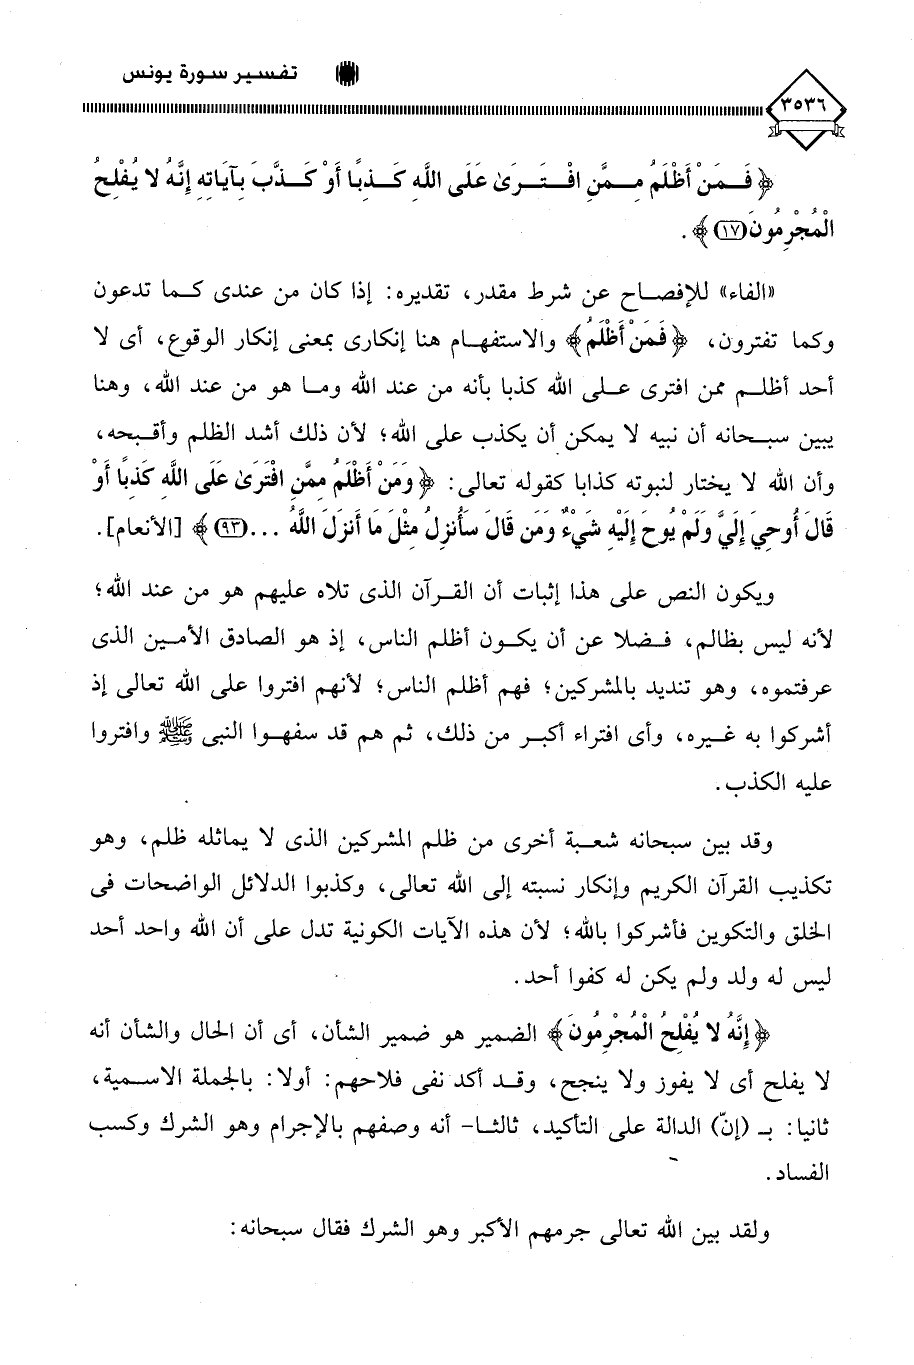 تفسير سورة يونس
٣٥٣٦
﴿ فَمَنْ أَظْلَمُ مِمَّنِ افْتَرَىٰ عَلَى اللَّهِ كَذِبًا أَوْ كَذَّبَ بِآيَاتِهِ إِنَّهُ لا يُفْلِحُ
الْمُجْرِمُونَ (١٧) ﴾ .
«الفاء» للإفصاح عن شرط مقدر، تقديره: إذا كان من عندى كما تدعون
وكما تفترون، ﴿ فَمَنْ أَظْلَمُ ﴾ والاستفهام هنا إنكارى بمعنى إنكار الوقوع، أى لا
أحد أظلم ممن افترى على الله كذبا بأنه من عند الله وما هو من عند الله، وهنا
يبين سبحانه أن نبيه لا يمكن أن يكذب على الله؛ لأن ذلك أشد الظلم وأقبحه،
وأن الله لا يختار لنبوته كذابا كقوله تعالى: ﴿ وَمَنْ أَظْلَمُ مِمَّنِ افْتَرَىٰ عَلَى اللَّهِ كَذِبًا أَوْ
قَالَ أُوحِيَ إِلَيَّ وَلَمْ يُوحَ إِلَيْهِ شَيْءٌ وَمَن قَالَ سَأُنزِلُ مِثْلَ مَا أَنزَلَ اللَّهُ ... (٩٣) ﴾ [الأنعام].
ويكون النص على هذا إثبات أن القرآن الذى تلاه عليهم هو من عند الله؛
لأنه ليس بظالم، فضلا عن أن يكون أظلم الناس، إذ هو الصادق الأمين الذى
عرفتموه، وهو تنديد بالمشركين؛ فهم أظلم الناس؛ لأنهم افتروا على الله تعالى إذ
أشركوا به غيره، وأى افتراء أكبر من ذلك، ثم هم قد سفهوا النبى ﷺ وافتروا
عليه الكذب.
وقد بين سبحانه شعبة أخرى من ظلم المشركين الذى لا يماثله ظلم، وهو
تكذيب القرآن الكريم وإنكار نسبته إلى الله تعالى، وكذبوا الدلائل الواضحات فى
الخلق والتكوين فأشركوا بالله؛ لأن هذه الآيات الكونية تدل على أن الله واحد أحد
ليس له ولد ولم يكن له كفوا أحد.
﴿ إِنَّهُ لا يُفْلِحُ الْمُجْرِمُونَ ﴾ الضمير هو ضمير الشأن، أى أن الحال والشأن أنه
لا يفلح أى لا يفوز ولا ينجح، وقد أكد نفى فلاحهم: أولا: بالجملة الاسمية،
ثانيا: بـ (إنّ) الدالة على التأكيد، ثالثا- أنه وصفهم بالإجرام وهو الشرك وكسب
الفساد.
ولقد بين الله تعالى جرمهم الأكبر وهو الشرك فقال سبحانه: